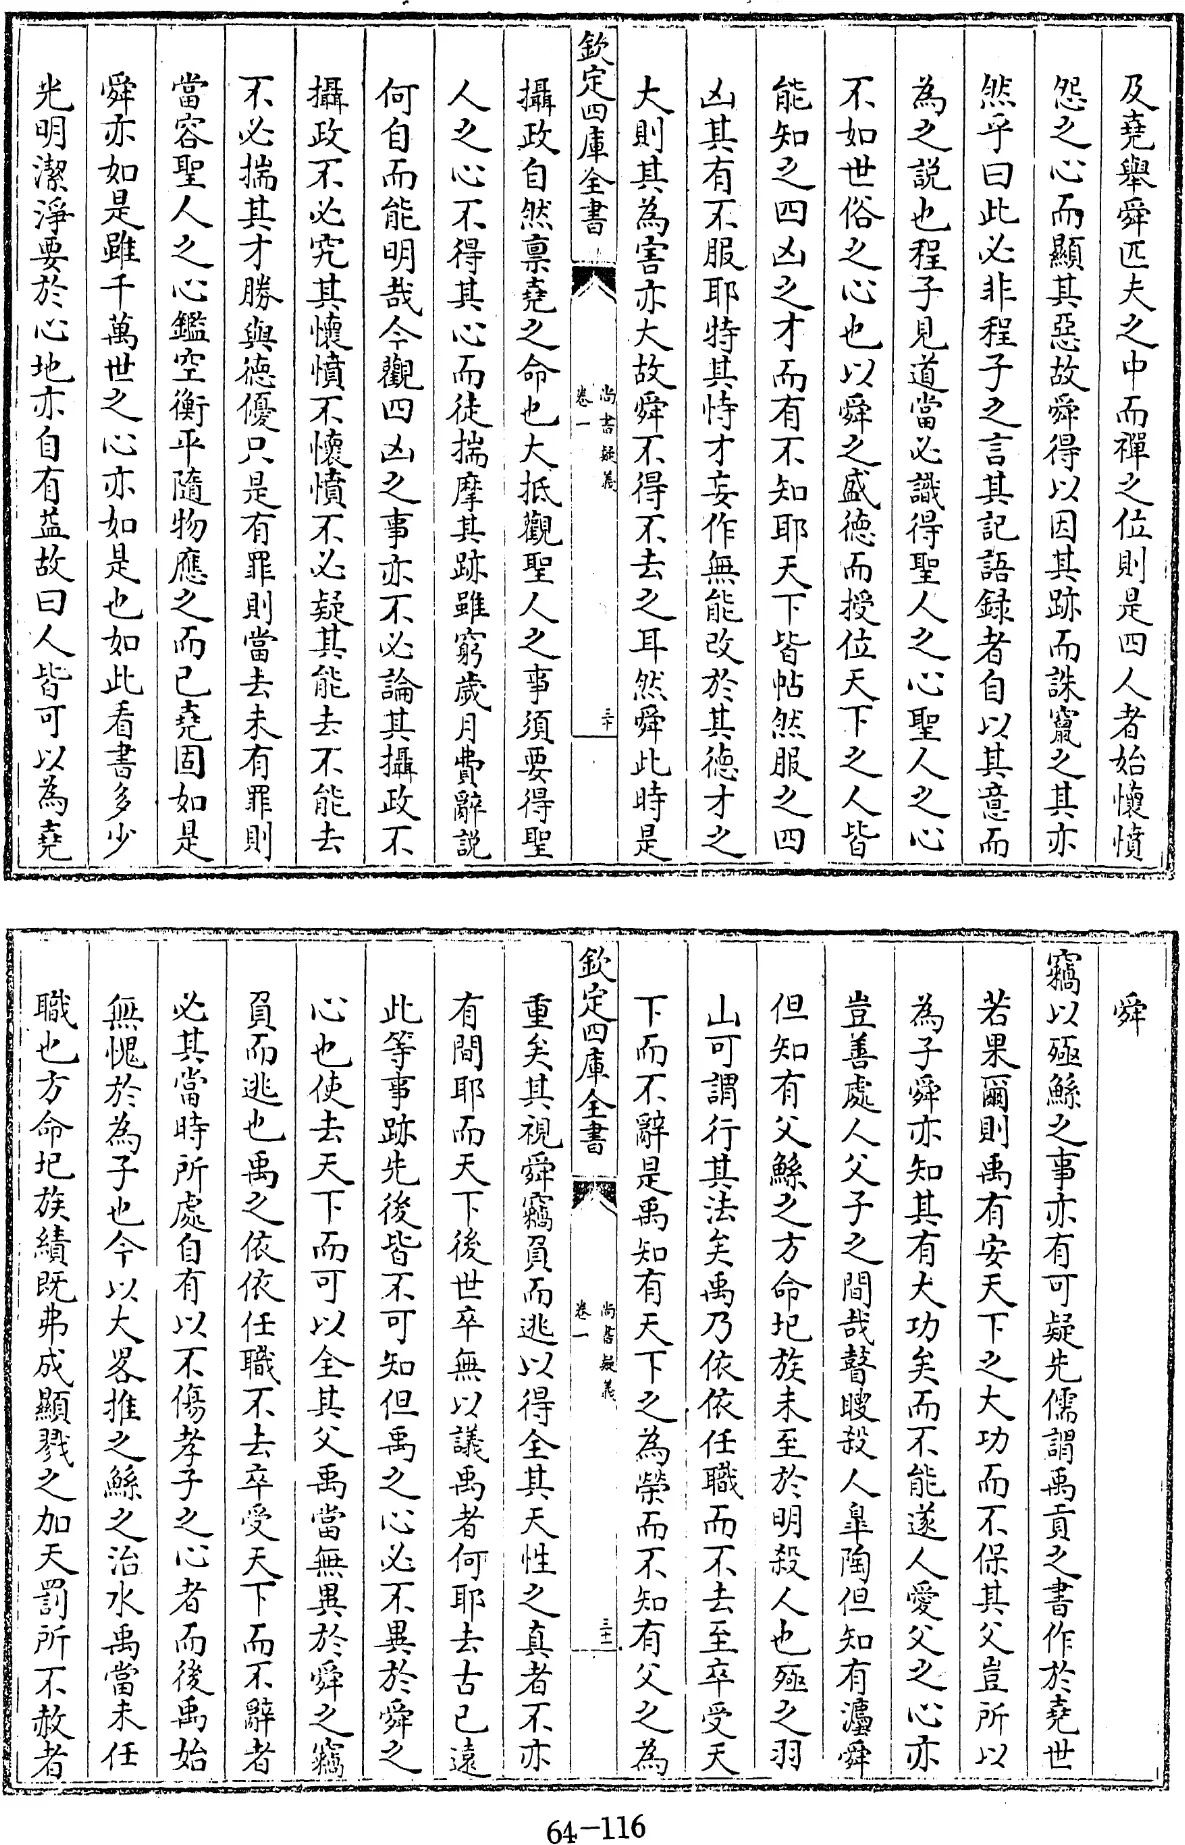 及堯舉舜匹夫之中而禪之位則是四人者始懷憤
怨之心而顯其惡故舜得以因其跡而誅竄之其亦
然乎曰此必非程子之言其記語録者自以其意而
為之説也程子見道當必識得聖人之心聖人之心
不如世俗之心也以舜之盛德而授位天下之人皆
能知之四凶之才而有不知耶天下皆帖然服之四
凶其有不服耶特其恃才妄作無能改於其德才之
大則其為害亦大故舜不得不去之耳然舜此時是
欽定四庫全書
尚書疑義
卷一
三十
攝政自然禀堯之命也大抵觀聖人之事須要得聖
人之心不得其心而徒揣摩其跡雖窮歲月費辭説
何自而能明哉今觀四凶之事亦不必論其攝政不
攝政不必究其懷憤不懷憤不必疑其能去不能去
不必揣其才勝與德優只是有罪則當去未有罪則
當容聖人之心鑑空衡平隨物應之而已堯固如是
舜亦如是雖千萬世之心亦如是也如此看書多少
光明潔淨要於心地亦自有益故曰人皆可以為堯
舜
竊以殛鯀之事亦有可疑先儒謂禹貢之書作於堯世
若果爾則禹有安天下之大功而不保其父豈所以
為子舜亦知其有大功矣而不能遂人愛父之心亦
豈善處人父子之間哉瞽瞍殺人臯陶但知有灋舜
但知有父鯀之方命圮族未至於明殺人也殛之羽
山可謂行其法矣禹乃依依任職而不去至卒受天
下而不辭是禹知有天下之為榮而不知有父之為
欽定四庫全書
尚書疑義
卷一
三十一
重矣其視舜竊負而逃以得全其天性之真者不亦
有間耶而天下後世卒無以議禹者何耶去古已遠
此等事跡先後皆不可知但禹之心必不異於舜之
心也使去天下而可以全其父禹當無異於舜之竊
負而逃也禹之依依任職不去卒受天下而不辭者
必其當時所處自有以不傷孝子之心者而後禹始
無愧於為子也今以大畧推之鯀之治水禹當未任
職也方命圮族績既弗成顯戮之加天罰所不赦者
64-116